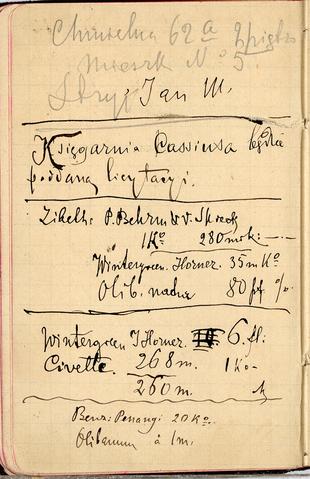 Chmielna 62a 2 piętro
mieszk No 5.
Stryj Jan M.
Księgarnia Cassiusa będzie
poddana licytacyi.
Zibeth: P. Behrm & V.
1 Ko 280 mrk:
Wintergreen. Horner. 35 m Ko
Olib. 80 pf %
Wintergreen J Horner. 6 fl:
Civette. 268 m. 1 Ko
260 m.
Benz: Penangi 20 Ko.
Olibanum à 1 m.